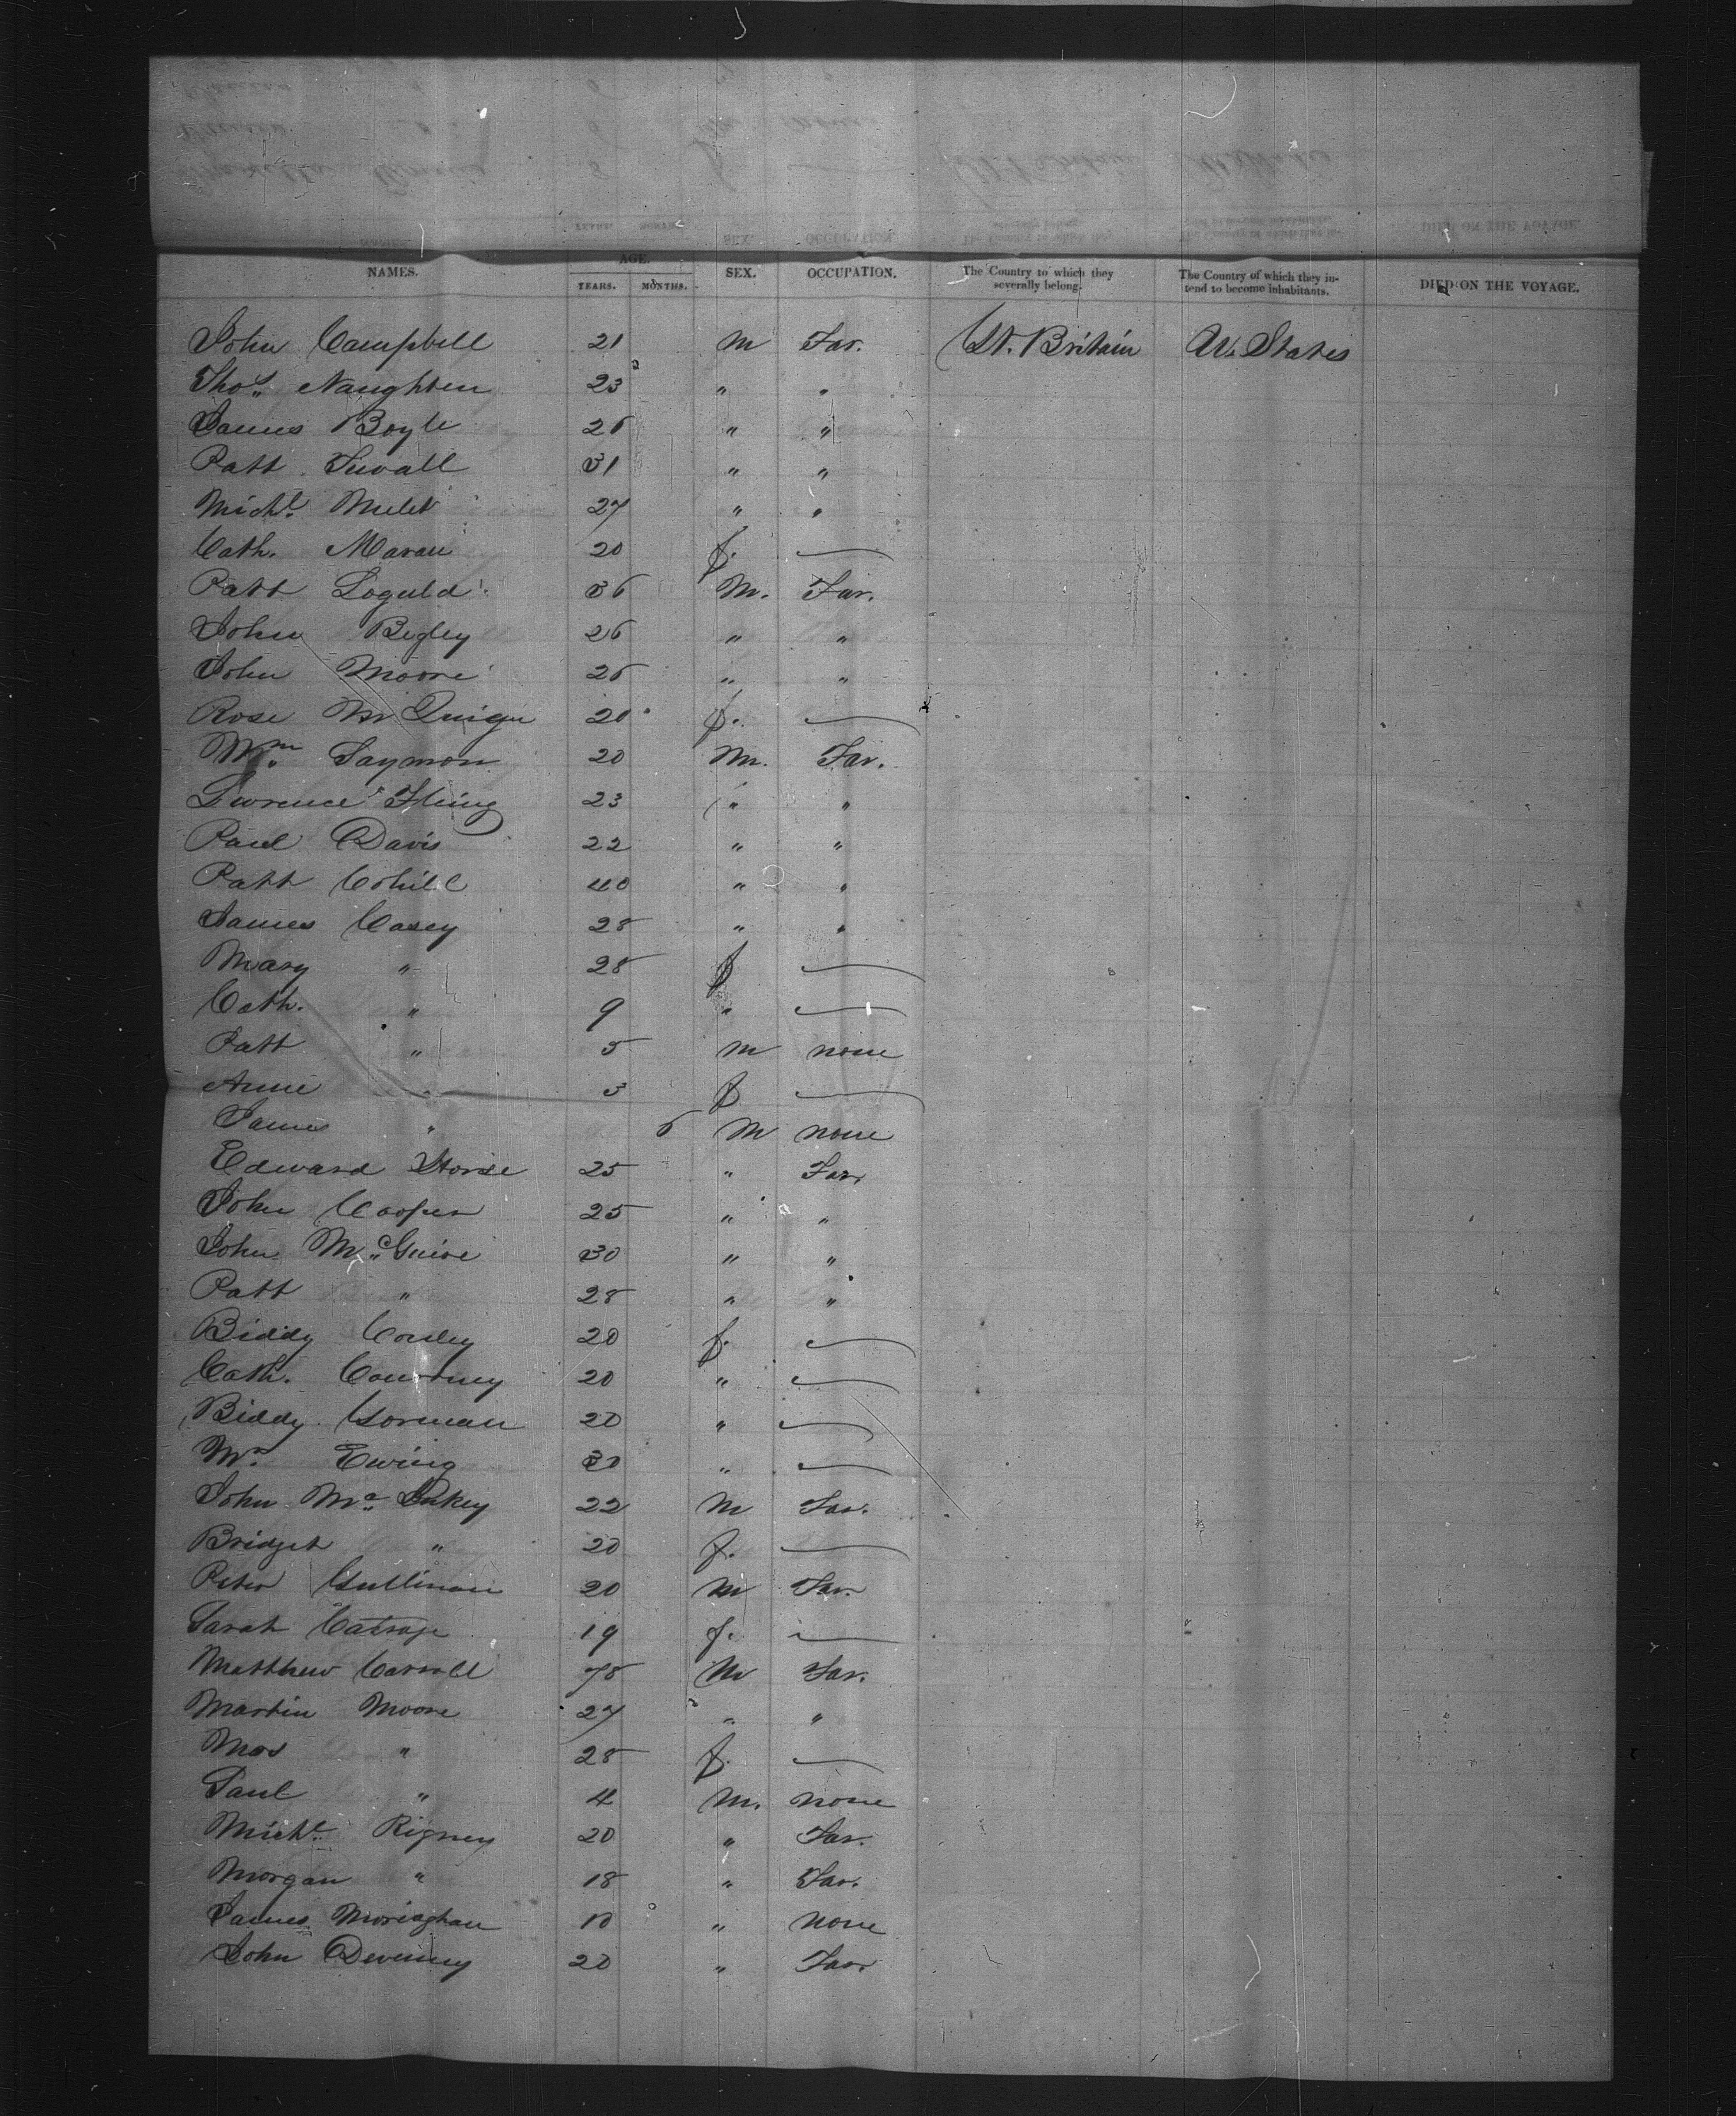 NAMES. AGE. SEX. OCCUPATION. The Country to which they severally belong. The Country of which they intend to become inhabitants. DIED ON THE VOYAGE.
YEARS. MONTHS.
John Campbell 21 M Far. Gt. Britain U. States
Thos. Naughten 23 " "
James Boyle 26 " "
Patt 31 " "
Michl. 27 " "
Cath. Moran 20 f. —
Patt 36 M. Far.
John Begley 26 " "
John Moore 26 " "
Rose 20 f. —
Wm. Saymon 20 M. Far.
23 " "
Paul Davis 22 " "
Patt Cohill 40 " "
James Casey 28 " "
Mary " 28 f —
Cath. " 9 " —
Patt " 5 M none
Anne " 3 f —
James " 6 M none
Edward 25 " Far.
John Cooper 25 " "
John McGuire 30 " "
Patt " 28 " "
Biddy Conley 20 f. —
Cath. Courtney 20 " —
Biddy Gorman 20 " —
Ewing 30 " —
John Mc 22 M Far.
Bridget " 20 f. —
Peter Cullinan 20 M Far.
Sarah 19 f. —
Matthew Carroll M Far.
Martin Moore 27 " "
Mrs " 28 f. —
Paul " 4 M. none
Michl. Rigney 20 " Far.
Morgan " 18 " Far.
James 10 " none
John Devenny 20 " Far.